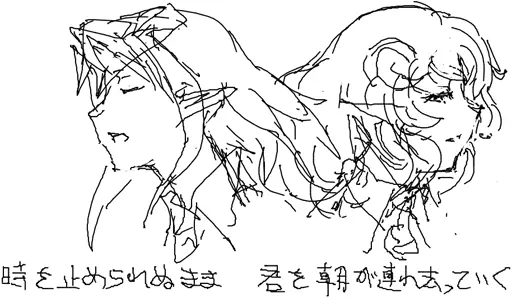 時を止められぬまま　君を朝が連れ去っていく